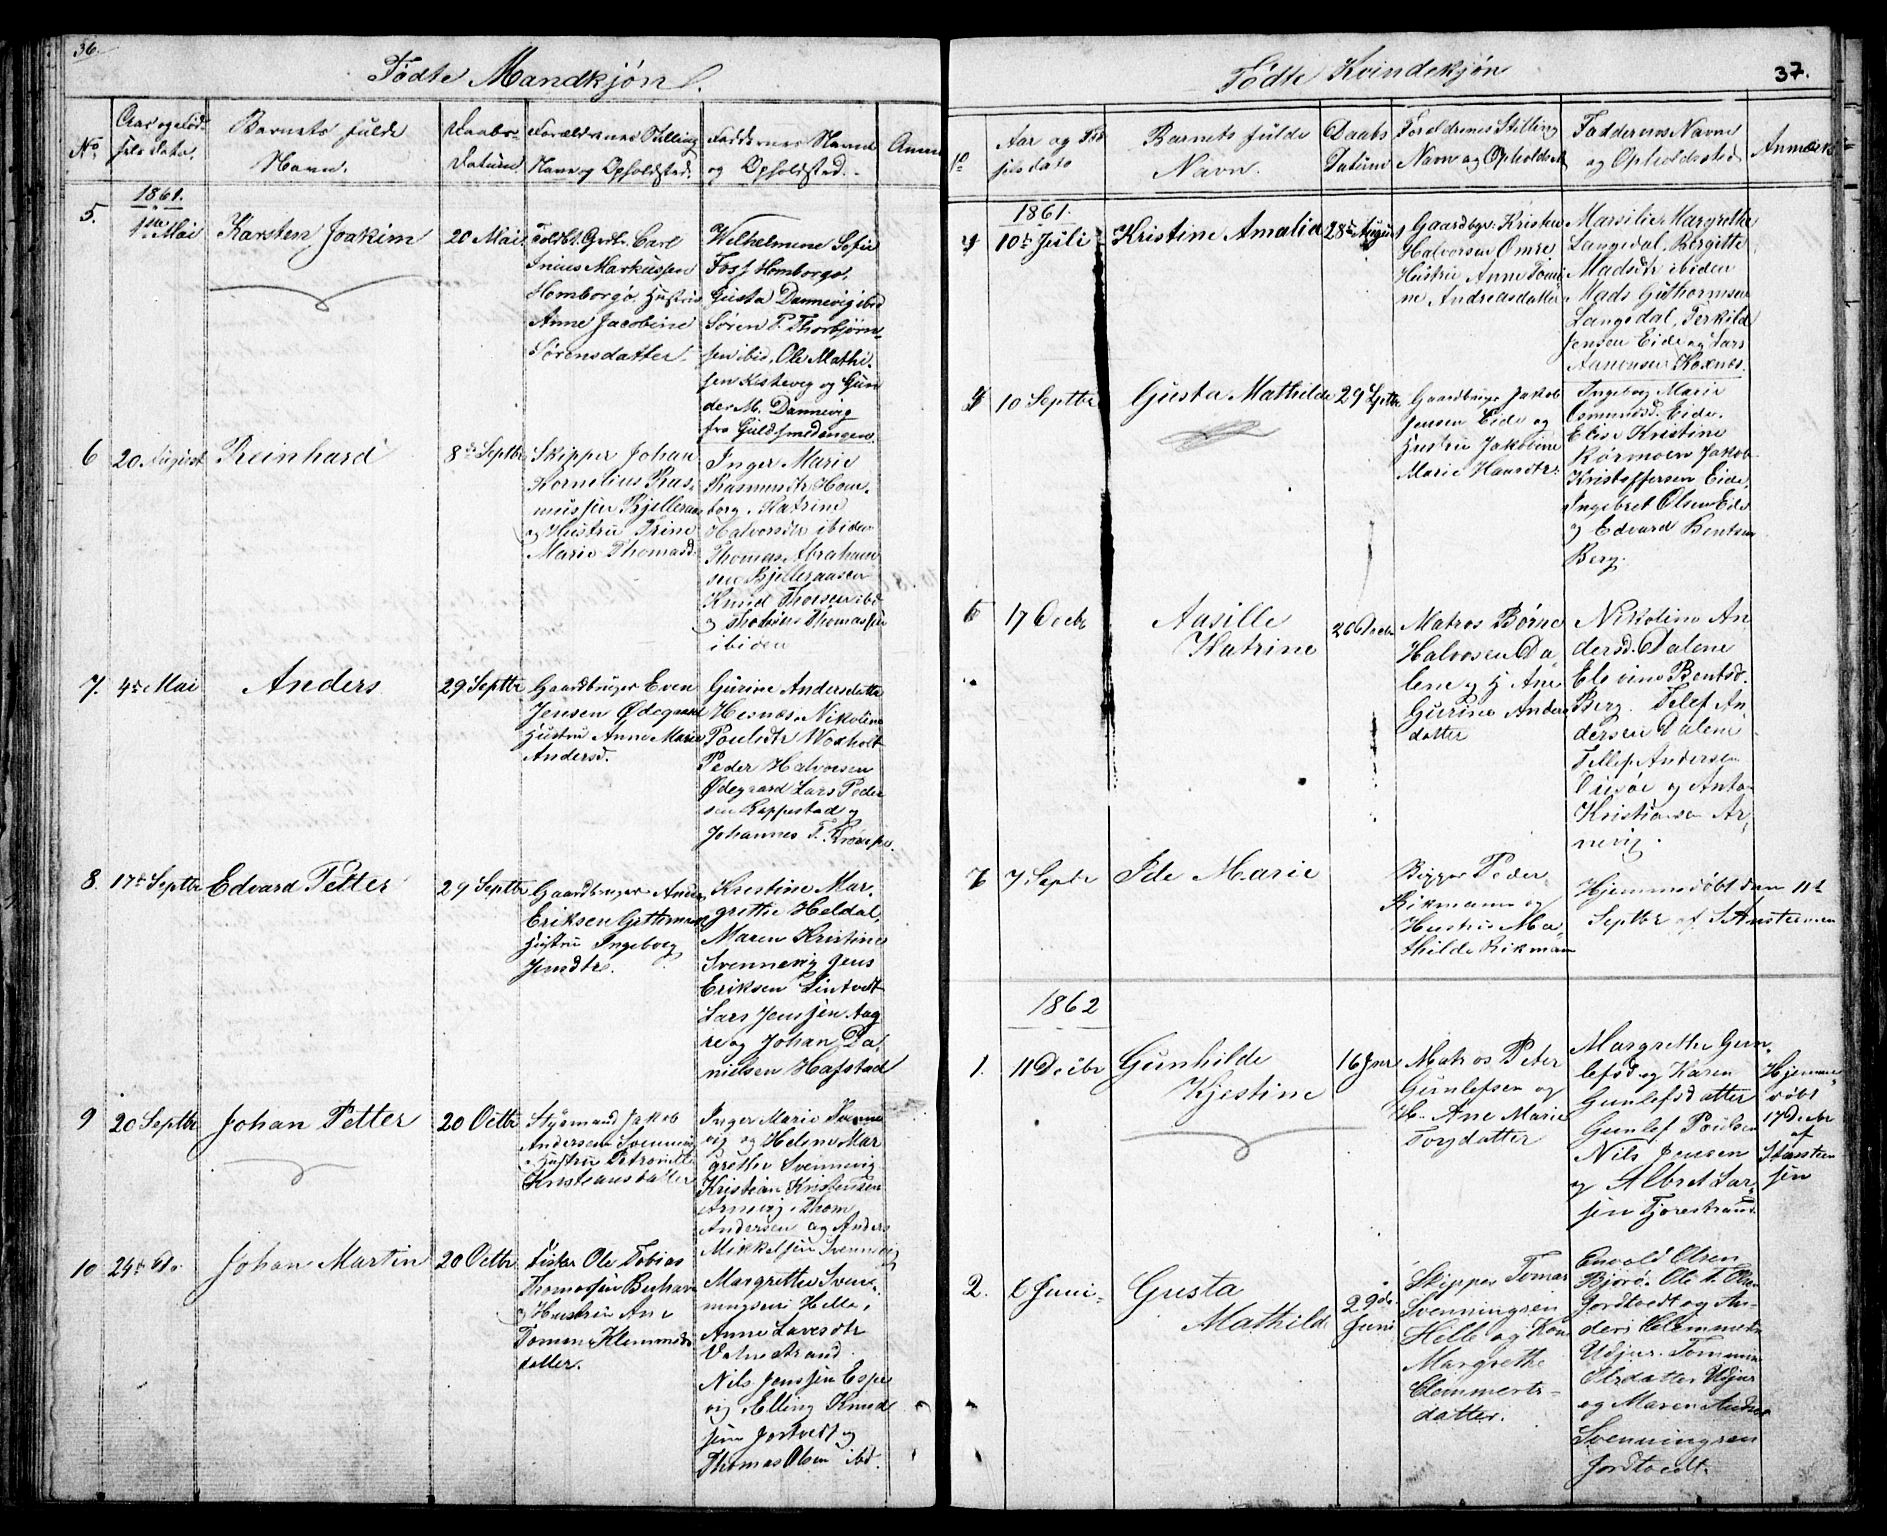 36.
Fødte Mandkjøn.
No.
Aar og Fød-
sels Data.
Barnets fulde
Navn.
Daabs-
Datum.
Forældrenes Stilling
Navn og Opholdsted.
Faddernes Navne
og Opholdsted.
Anm
1861.
5.
1ste Mai
Karsten Joakim
20 Mai
Carl
Inius Markussen
Homborgø, Hustru
Anne Jacobine
Sørensdatter.
Wilhelmene Sofie
Foss Homborgø.
Gusta Dannevig ibid
Søren P. Thorbjørn-
sen ibid, Ole Mathi-
sen Kistevig og Gun
der M. Dannevig
fra Guldsmedengen
6
20 August
Reinhard
8de Septbr
Skipper Johan
Kornelius Ras-
mussen Bjelleraas
og Hustru Trine
Marie Thomasd.
Inger Marie
Rasmusdtr Hom-
borg. Katrine
Halvorsdtr ibiden
Thomas Abraham
sen Bjelleraasen
Knud Thorsen ibd
og Tobias Thomassen
ibiden
7.
4de Mai
Anders
29 Septbr
Gaardbruger Even
Jensen Ødegaard
Hustru Anne Marie
Andersd.
Gurine Andersdatter
Hesnæs. Nikoline
Poulsdtr Woxholt
Peder Halvorsen
Ødegaard Lars Peder
sen Rappestad og
Johannes T.
8.
17de Septbr
Edvard Petter
29 Septbr
Gaardbruger Anders
Eriksen
Hustru Ingeborg
Jensdtr.
Kristine Mar-
grethe Heldal,
Maren Kristine
Svennevig Jens
Eriksen Lintvedt
Lars Jenssen Aag
re og Johan Da-
nielsen Hafstad
9
20 Septbr
Johan Petter
20 Octbr
Stysmand Jakob
Andersen Svennevig
Hustru Petronelle
Kristiansdatter
Inger Marie Svenne
vig og Helene Mar
grethe Svennevig
Kristian Kristensen
Arnevig, Thom
Andersen og Anders
Mikkelsen Svennevig
10
24de do
Johan Martin
20 Octbr
Fisker Ole Tobias
Thomassen
og Hustru Ane
Tomine Klemmeds
datter.
Margrethe Sven-
ningsen Helle,
Anne Larsdtr
Valnestrand
Nils Jenssen Espe
vig, Elling Knud
sen Jortvedt og
Thomas Olsen ibd.
37.
Fødte Kvindekjøn
No
Aar og Fød
selsdato
Barnets fulde
Navn.
Daabs
Datum
Foreldrenes Stilling
Navn og Opholdsted
Faddernes Navne
og Opholdssted
Anmærk
1861.
4
10de Juli
Kristine Amalia
28de August
Gaardbgr. Kristen
Halvorsen Omre
Hustru Anne Tomi-
ne Andreasdatter
Marsilie Margrethe
Langedal, Bergitte
Madsdtr ibiden
Mads Guthormsen
Langedal, Terkild
Jensen Eide og Lars
Aanonsen Koxnes.
10 Septbr
Gusta Mathilde
29 Septbr
Gaardbruger Jakob
Jensen Eide og
Hustru Jakobine
Marie Hansdtr.
Ingeborg Marie
Osmundsd. Eide.
Elise Kristine
Rørmoen Jakob
Kristoffersen Eide,
Ingebret Olsen Eide
og Edvard Bentsen
Berg.
6
17 Decbr
Aasille
Katrine
26 Decbr
Matros Børne
Halvorsen Da-
lene og H. Ane
Gurine Anders
datter
Nikoline An-
dersd. Dalene
Elevine Bentsd.
Berg. Tellef An-
dersen Dalene
Tellef Andersen
og Anton
Kristiansen Ar-
nevig.
7
7 Septbr
Ide Marie
Rigger Peder
Rikmann og
Hustru Ma-
thilde Rikmann
Hjemmedøbt den 11te
Septbr af S. Anstensen
1862
1.
11 Decbr
Gunhilde
Kjestine
16 Jnr
Matros Peter
Gunlefsen og
H. Ane Marie
Torgdatter
Margrethe Gun-
lefsd og Karen
Gunlefsdatter
Gunlef Poulsen
Nils Jensen
og Albret Lar-
sen Fjorestrand
Hjemme-
døbt
17 Decbr
af
S. Ansten
sen
2.
6 Juni
Gusta
Mathilde
29de
Juni
Skipper Tomas
Svenningsen
Helle og Kone
Margrethe
Clemmets-
datter.
Envold Olsen
Bjorø. Ole T. Olsen
Jordtvedt og An-
ders Clemmetsen
Udjur. Tommine
Elsdatter Udjur
og Maren Andrea
Svenningsen
Jordtvedt.